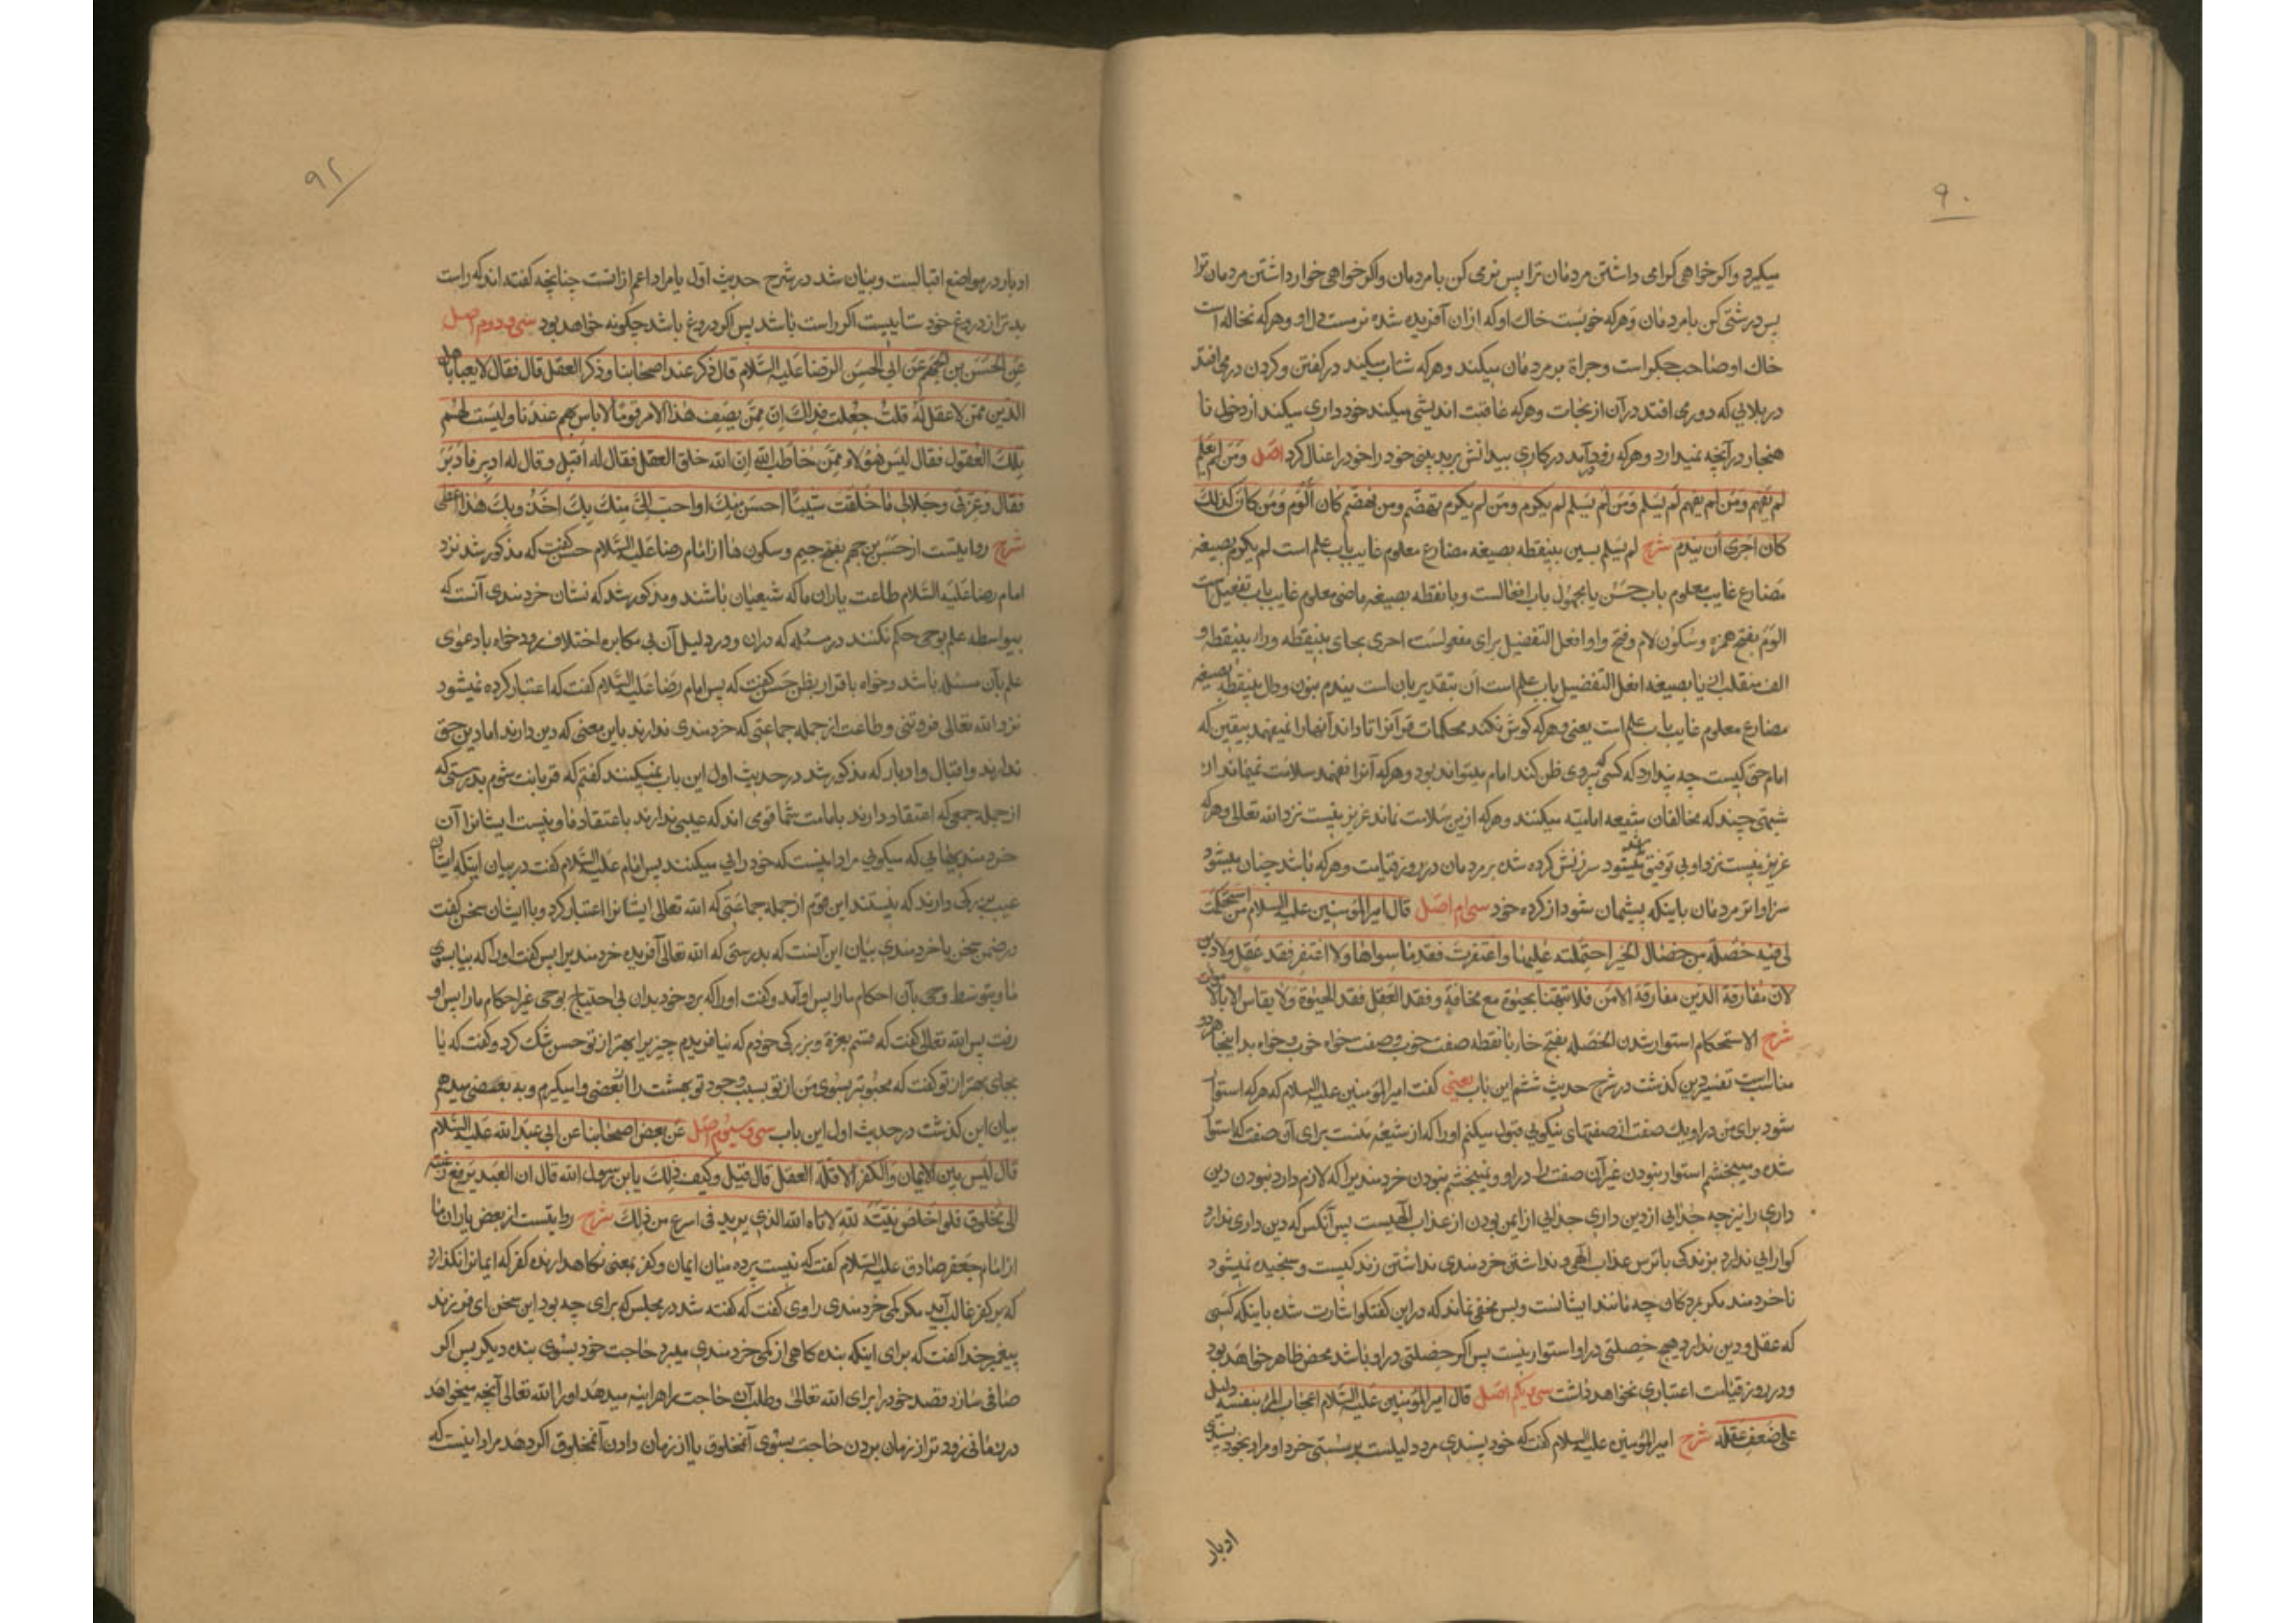 ۹۰
میکیرد واکر خواهی کرامی داشتن مردمان ترا پس نرمی کن با مردمان واکر خواهی خوار داشتن مردمان ترا
پس درشتی کن با مردمان وهرکه خوبست خاك اوکه ازان آفریده شده نرمست دل او وهرکه نخاله است
خاك او صاحب جکر است وجراة بر مردمان میکند وهرکه شتاب میکند در کفتن وکردن در می افتد
در بلایی که دور می افتد در آن از نجات وهرکه عاقبت اندیشی میکند خود داری میکند از دخول نا
هنجار در آنچه نمیداند وهرکه رود آمد در کاری بیدانش برید بینی خود را خود را عنال کرد اصل ومن لم یعلم
لم یفهم ومن لم یفهم لم یسلم ومن لم یسلم لم یکرم ومن لم یکرم تهضم ومن تهضم کان الوم ومن کان کذلك
کان احری ان یندم شرح لم یسلم بسین بینقطه بصیغه مضارع معلوم غایب باب علم است لم یکرم بصیغه
مضارع غایب معلوم باب حسن یا مجهول باب افعالست وبا نقطه بصیغه ماضی معلوم غایب باب تفعیل است
الوم بفتح همزه وسکون لام وفتح واو افعل التفضیل برای مفعولست احری بحای بینقطه وراء بینقطه و
الف منقلب از یا بصیغه افعل التفضیل باب علم است ان بتقدیر بان است یندم بنون ودال بینقطه بصیغه
مضارع معلوم غایب باب علم است یعنی وهرکه کوش نکند محکمات قرآنرا تا داند آنها را نمیفهمد بیقین که
امام حق کیست چه پندارد که کسی که پیروی ظن کند امام میتواند بود وهرکه آنرا نفهمد سلامت نمیماند از
شبهتی چند که مخالفان شیعه امامیه میکنند وهرکه ازین سلامت نماند عزیز نیست نزد الله تعالی وهرکه
عزیز نیست نزد او بی توفیق میشود سرزنش کرده شده بر مردمان در روز قیامت وهرکه باشد چنان میشود
سزاوارتر مردمان باینکه پشیمان شود از کرده خود سی ام اصل قال امیرالمؤمنین علیه السلام من استحکمت
لی فیه خصلة من خصال الخیر احتملته علیها واغتفرت فقد ما سواها ولا اغتفر فقد عقل ولا دین
لان مفارقة الدین مفارقة الامن فلا یتهنا بحیوة مع مخافة وفقد العقل فقد الحیوة ولا یقاس الا بالاموات
شرح الاستحکام استوار شدن الخصله بفتح خاء با نقطه صفت خوب وصفت خواه خوب وخواه بد اینجا هر دو
مناسبست تفسیر دین کذشت در شرح حدیث ششم این باب یعنی کفت امیرالمؤمنین علیه السلام که هرکه استوار
شود برای من در او یك صفت از صفتهای نیکویی قبول میکنم اورا که از شیعه منست برای آن صفت که استوار
شده ومیبخشم استوار نبودن غیر آن صفت را در او ونمیبخشم نبودن خردمندیرا که لازم دارد نبودن دین
داری را نیز چه جدایی از دین داری جدایی از ایمن بودن از عذاب الهیست پس آنکس که دین داری ندارد
کوارایی ندارد بزندکی با ترس عذاب الهی ونداشتن خردمندی نداشتن زندکیست وسنجیده نمیشود
ناخردمند مکر بمردکان چه مانند ایشانست وبس مخفی نماند که دراین کفتکو اشارت شده باینکه کسی
که عقل ودین ندارد هیچ خصلتی در او استوار نیست پس اکر خصلتی در او باشد محض ظاهر خواهد بود
ودر روز قیامت اعتباری نخواهد داشت سی ویکم اصل قال امیرالمؤمنین علیه السلام اعجاب المرء بنفسه دلیل
علی ضعف عقله شرح امیرالمؤمنین علیه السلام کفت که خود پسندی مرد دلیلست بر سستی خرد او مراد بخود پسندی
ادبار
۹۲
ادبار در مواضع اقبالست وبیان شد در شرح حدیث اول یا مراد اعم ازانست چنانچه کفته اند که راست
بدتر از دروغ خود ستاییست اکر راست باشد پس اکر دروغ باشد چکونه خواهد بود سی ودوم اصل
عن الحسن بن الجهم عن ابی الحسن الرضا علیه السلام قال ذکر عنده اصحابنا وذکر العقل قال فقال لا یعبا باهل
الدین ممن لا عقل له قلت جعلت فداك ان ممن یصف هذا الامر قوما لا باس بهم عندنا ولیست لهم
تلك العقول فقال لیس هؤلاء ممن خاطب الله ان الله خلق العقل فقال له اقبل وقال له ادبر فادبر
فقال وعزتی وجلالی ما خلقت شیئا احسن منك او احب الی منك بك اخذ وبك هذا اعطی
شرح روایتست از حسن بن جهم بفتح جیم وسکون ها از امام رضا علیه السلام حسن کفت که مذکور شد نزد
امام رضا علیه السلام طاعت یاران ما که شیعیان باشند ومذکور شد که نشان خردمندی آنست که
بیواسطه علم بوحی حکم نکنند در مسئله که دران ودر دلیل آن بی مکابره اختلاف رود خواه با دعوای
علم بآن مسئله باشد وخواه با اقرار بظن حسن کفت که پس امام رضا علیه السلام کفت که اعتبار کرده نمیشود
نزد الله تعالی فروتنی وطاعت از جمله جماعتی که خردمندی ندارند باین معنی که دین دارند اما دین حق
ندارند واقبال وادبار که مذکور شد در حدیث اول این باب نمیکنند کفتم که قربانت شوم بدرستی که
از جمله جمعی که اعتقاد دارند بامامت شما قومی اند که عیبی ندارند باعتقاد ما ونیست ایشانرا آن
خردمندیهایی که میکویی مراد اینست که خود رایی میکنند پس امام علیه السلام کفت در بیان اینکه ایشان
عیب بزرکی دارند که نیستند این قوم از جمله جماعتی که الله تعالی ایشانرا اعتبار کرد وبا ایشان سخن کفت
در ضمن سخن با خردمندی بیان این آنست که بدرستی که الله تعالی آفریده خردمندیرا پس کفت اورا که بیا بسوی
ما وبتوسط وحی بآن احکام مارا پس او آمد وکفت اورا که برو خود بدان بی احتیاج بوحی غیر احکام مارا پس او
رفت پس الله تعالی کفت که قسم بعزة وبزرکی خودم که نیافریدم چیزیرا بهتر از تو حسن شك کرد وکفت که یا
بجای بهتر از تو کفت که محبوبتر بسوی من از تو بسبب وجود تو بهشت را از بعضی وامیکیرم وبه بعضی میدهم
بیان این کذشت در حدیث اول این باب سی وسیوم اصل عن بعض اصحابنا عن ابی عبد الله علیه السلام
قال لیس بین الایمان والکفر الا قلة العقل قال قیل وکیف ذلك یا بن رسول الله قال ان العبد یرفع رغبته
الی مخلوق فلو اخلص نیته لله لاتاه الله الذی یرید فی اسرع من ذلك شرح روایتست از بعض یاران ما
از امام جعفر صادق علیه السلام کفت که نیست پرده میان ایمان وکفر بمعنی نکاهدارنده کفر که ایمانرا نکذارد
که بر کفر غالب آید مکر کمی خردمندی راوی کفت که کفته شد در مجلس که برای چه بود این سخن ای فرزند
پیغمبر خدا کفت که برای اینکه بنده کاهی از کمی خردمندی میبرد حاجت خود بسوی بنده دیکر پس اکر
صافی سازد قصد خود را برای الله تعالی وطلب آن حاجت را هراینه میدهد اورا الله تعالی آنچه میخواهد
در زمانی زودتر از زمان بردن حاجت بسوی آنمخلوق یا از زمان دادن آنمخلوق اکر دهد مراد اینست که